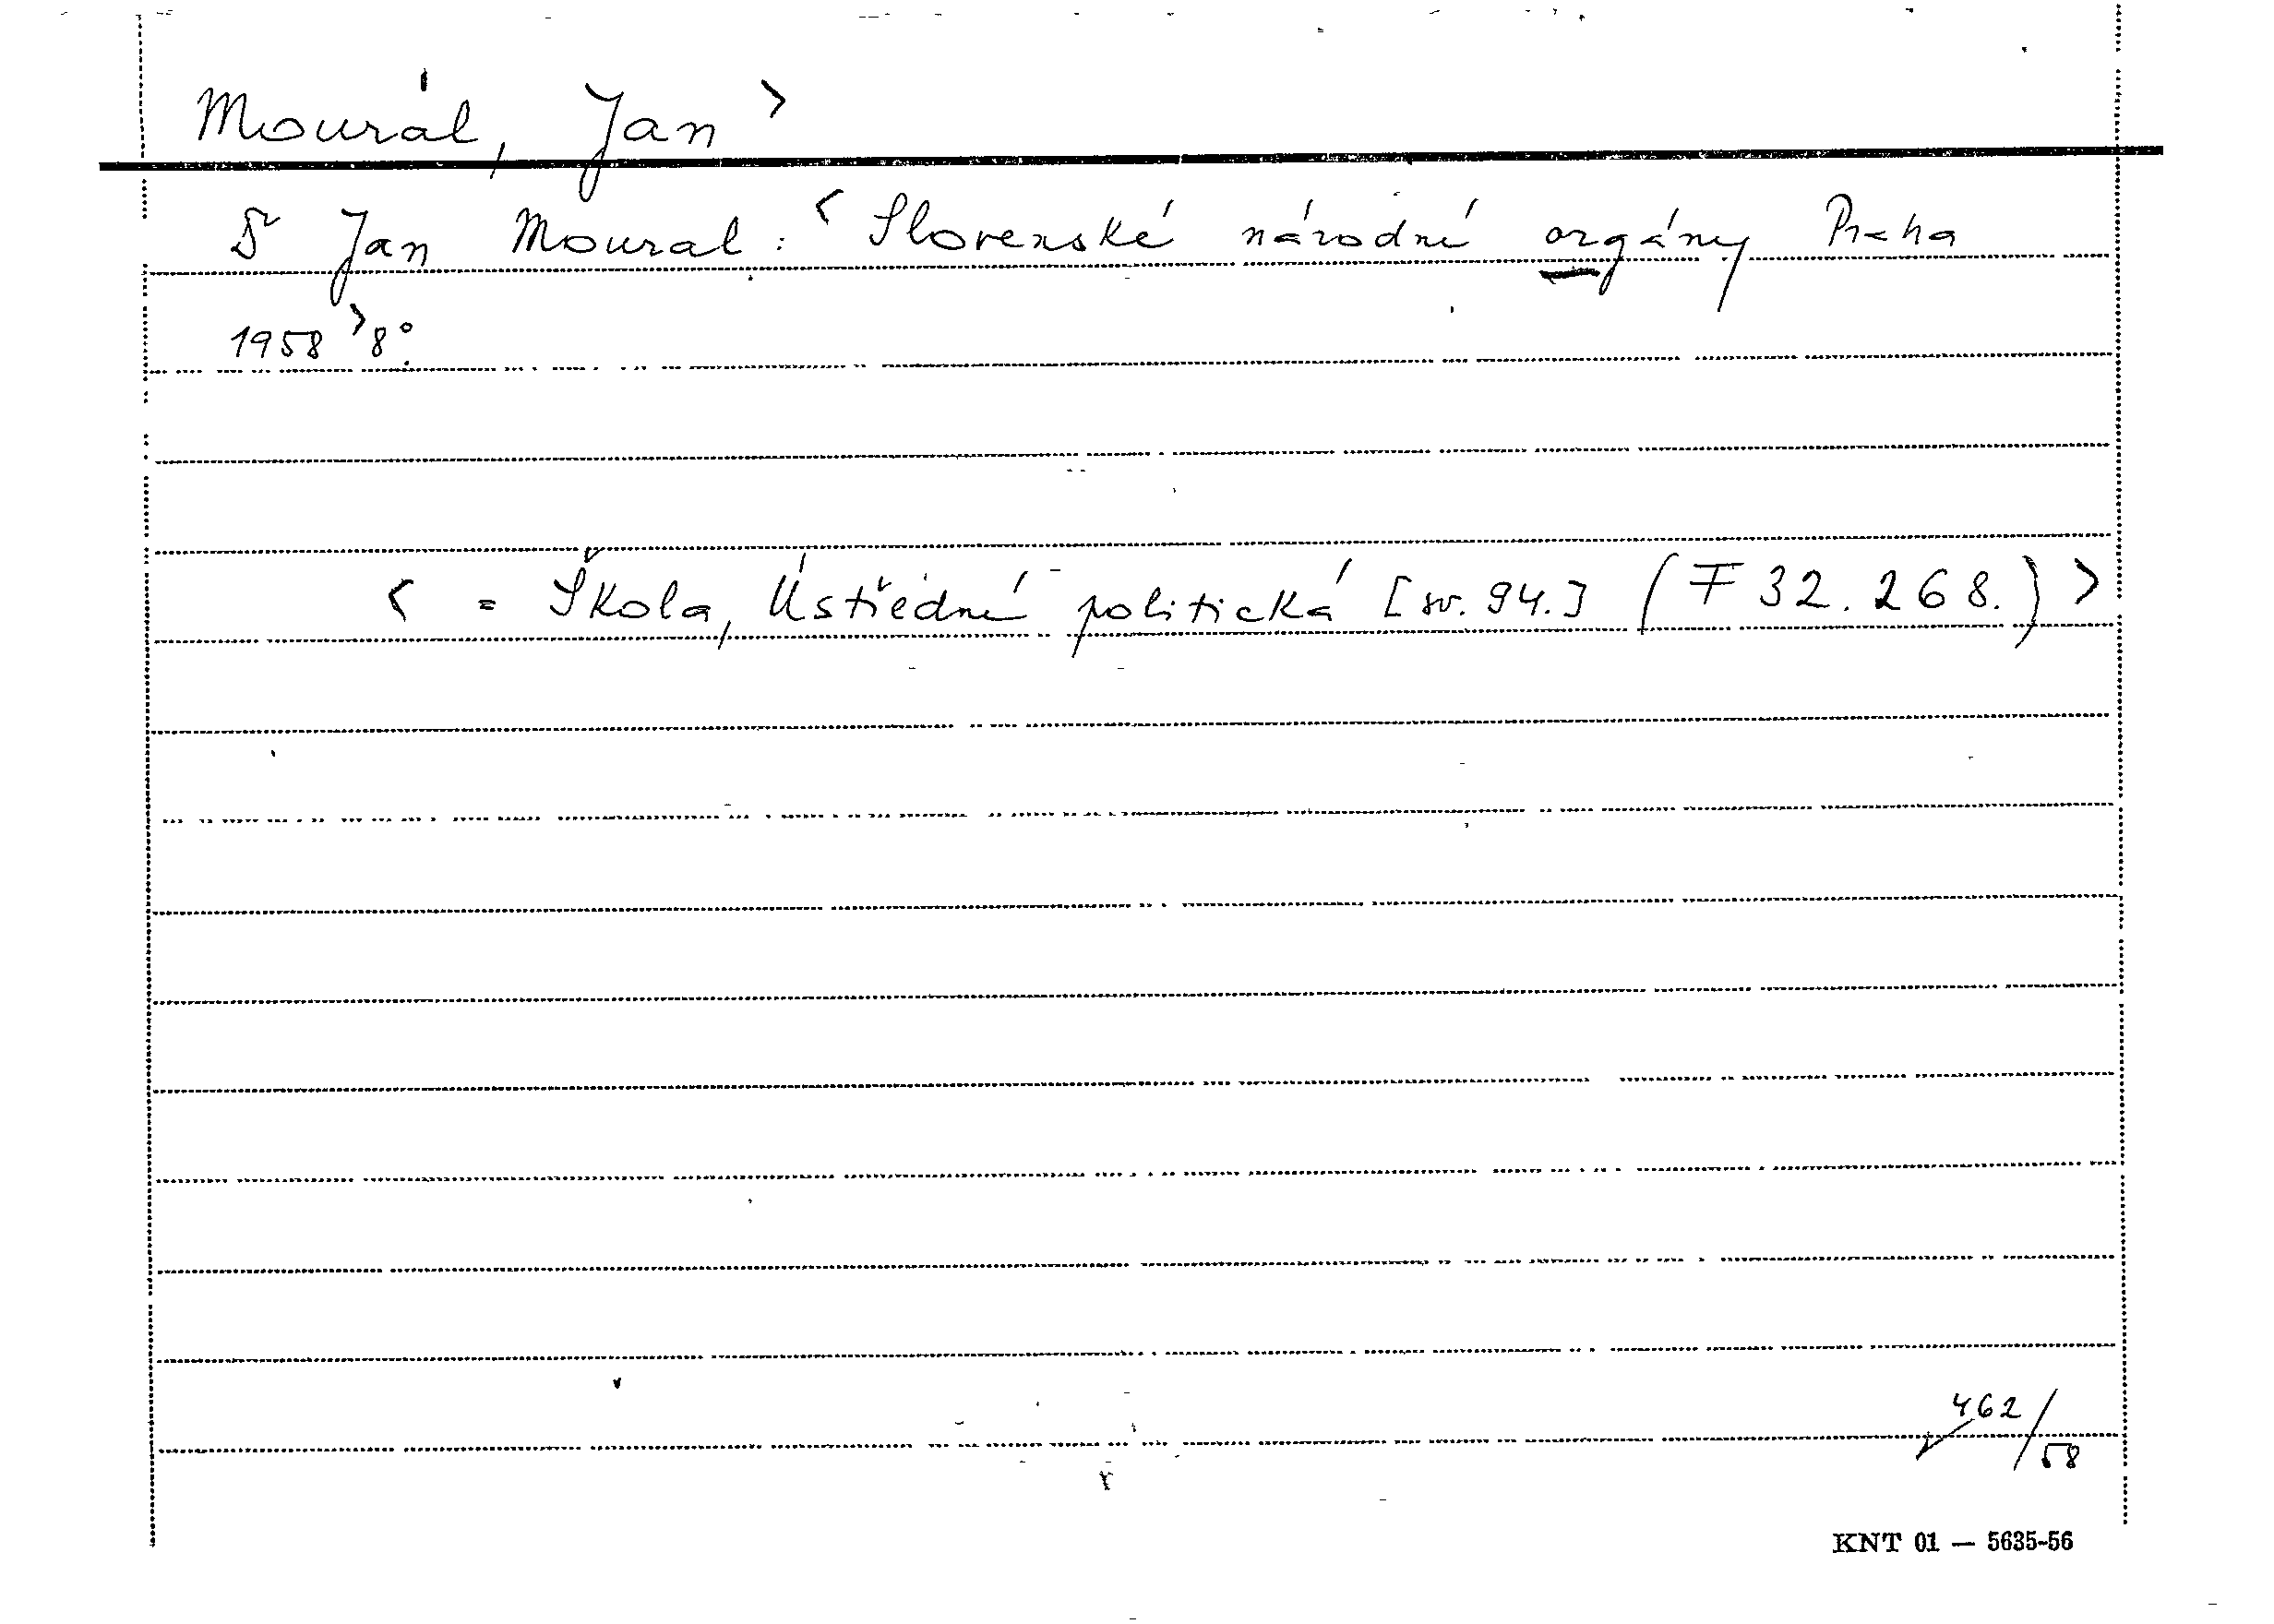 Mourál, Jan >
Dr Jan Moural: < Slovenské národní orgány Praha
1958 > 8°.
< = Škola, Ústřední politická [sv. 94.] (F 32.268.) >
462/58
KNT 01 — 5635-56